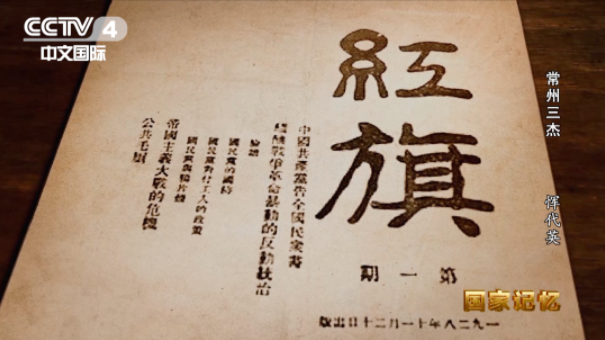 CCTV 4
中文国际
紅旗
第一期
一九二八年十一月二十日出版
中國共產黨告全國民衆書
戰爭革命暴動的反動統治
國民黨的國
國民黨對付工人的政策
國民黨與鴉片煙
帝國主義大戰的危機
公共毛
常州三杰 恽代英
国家记忆